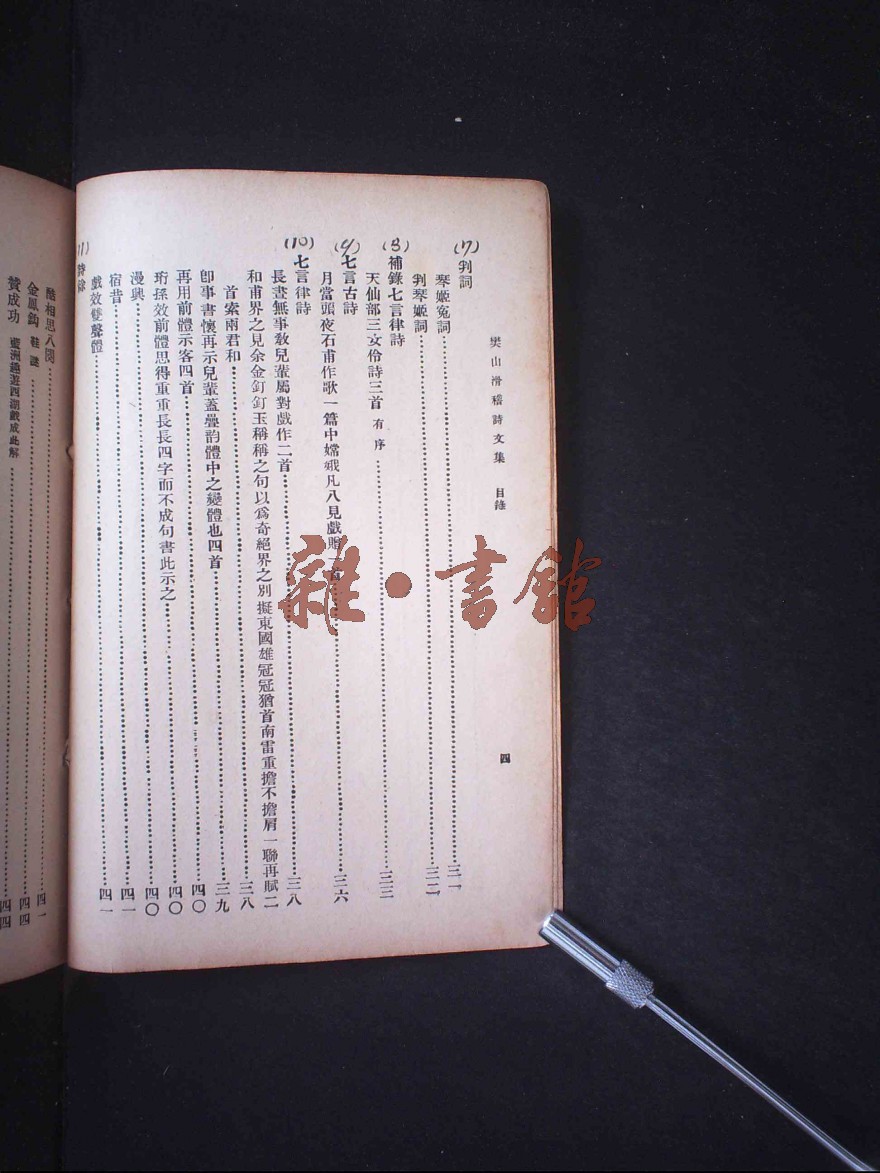 樊山滑稽詩文集 目錄 四
(7) 判詞
琴姬寃詞……三一
判琴姬詞……三二
(8) 補錄七言律詩
天仙部三女伶詩三首 有序……三三
(9) 七言古詩
月當頭夜石甫作歌一篇中嫦娥凡八見戲贈一首……三六
(10) 七言律詩
長晝無事敎兒輩屬對戲作二首……三八
和甫界之見余金釘釘玉稱稱之句以爲奇絕界之別擬東國雄冠冠猶首南雷重擔不擔肩一聯再賦二
首索兩君和……三九
卽事書懷再示兒輩蓋疊韵體中之變體也四首……四〇
再用前體示客四首……四〇
珩孫效前體思得重重長長四字而不成句書此示之……四〇
漫興……四一
宿昔……四一
戲效雙聲體……四一
詩餘
酷相思八闋……四一
金鳳鈎 鞋謎……四四
贊成功 藍洲趣遊西湖戲成此解……四四
雜·書館